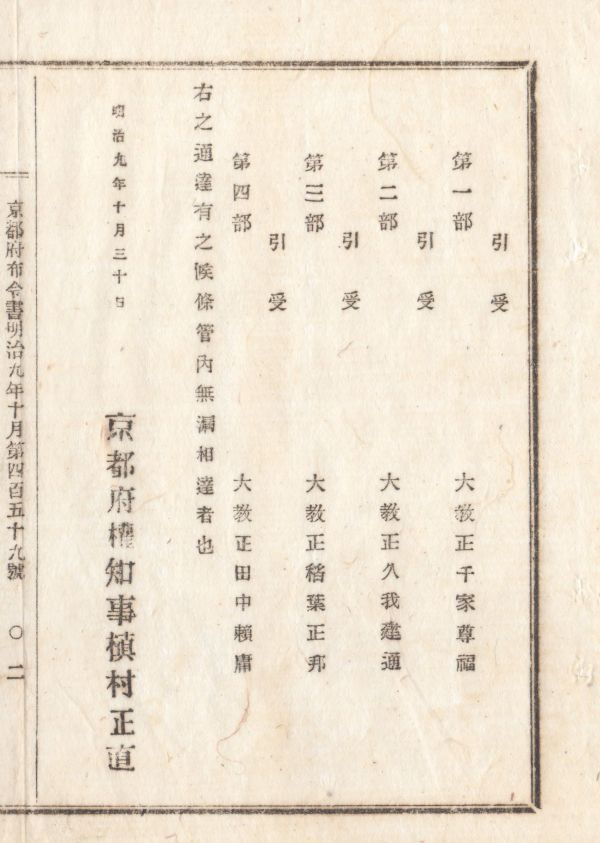 第一部
引受 大教正千家尊福
第二部
引受 大教正久我建通
第三部
引受 大教正稻葉正邦
第四部
引受 大教正田中賴庸
右之通達有之候條管内無漏相達者也
明治九年十月三十日
京都府權知事槇村正直
京都府布令書明治九年十月第四百五十九號 〇二